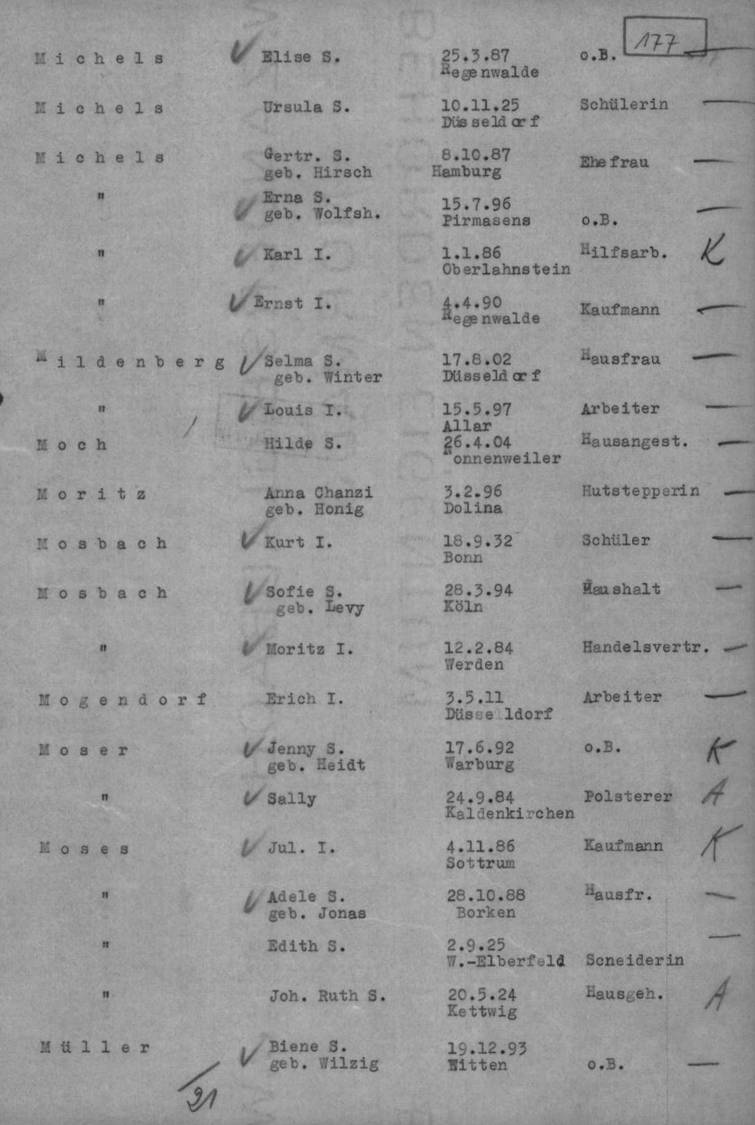 177
M i c h e l s Elise S. 25.3.87 o.B.
Regenwalde
M i c h e l s Ursula S. 10.11.25 Schülerin
Düsseldorf
M i c h e l s Gertr. S. 8.10.87
geb. Hirsch Hamburg Ehefrau
" Erna S. 15.7.96
geb. Wolfsh. Pirmasens o.B.
" Karl I. 1.1.86 Hilfsarb. K
Oberlahnstein
" Ernst I. 4.4.90 Kaufmann
Regenwalde
M i l d e n b e r g Selma S. 17.8.02 Hausfrau
geb. Winter Düsseldorf
" Louis I. 15.5.97 Arbeiter
Allar
M o c h Hilde S. 26.4.04 Hausangest.
Nonnenweiler
M o r i t z Anna Chanzi 3.2.96 Hutstepperin
geb. Honig Dolina
M o s b a c h Kurt I. 18.9.32 Schüler
Bonn
M o s b a c h Sofie S. 28.3.94 Haushalt
geb. Levy Köln
" Moritz I. 12.2.84 Handelsvertr.
Werden
M o g e n d o r f Erich I. 3.5.11 Arbeiter
Düsseldorf
M o s e r Jenny S. 17.6.92 o.B. K
geb. Heidt Warburg
" Sally 24.9.84 Polsterer A
Kaldenkirchen
M o s e s Jul. I. 4.11.86 Kaufmann K
Sottrum
" Adele S. 28.10.88 Hausfr.
geb. Jonas Borken
" Edith S. 2.9.25
W.-Elberfeld Scneiderin
" Joh. Ruth S. 20.5.24 Hausgeh. A
Kettwig
M ü l l e r Biene S. 19.12.93
geb. Wilzig Witten o.B.
21